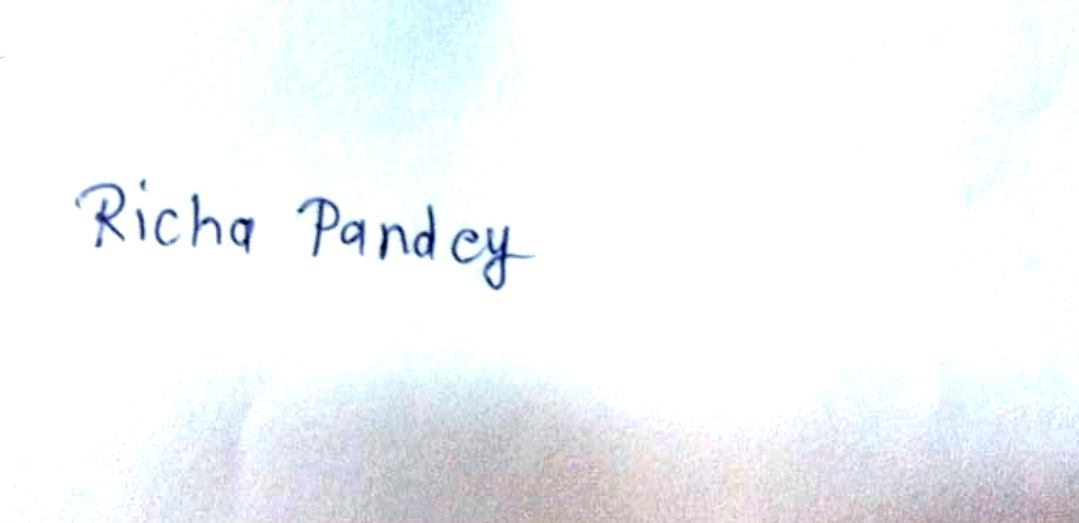 Richa Pandey